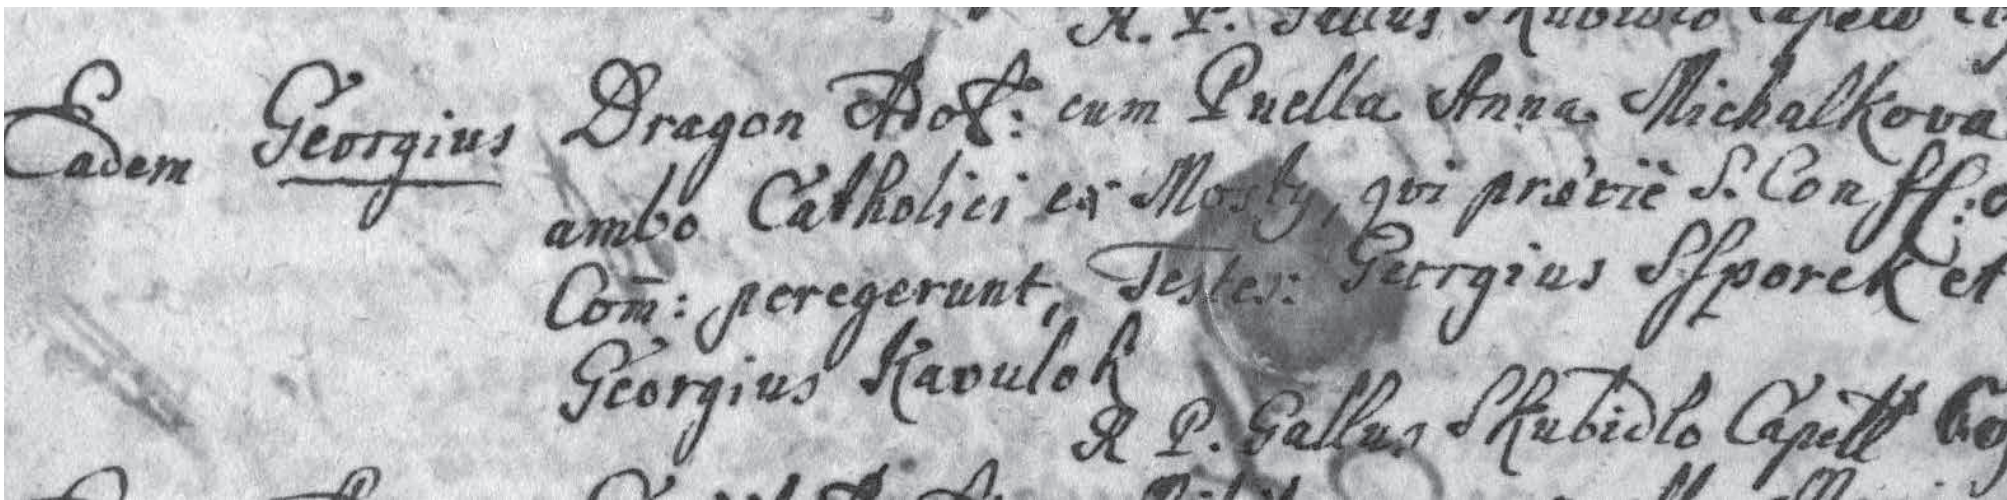 R. P. Gallus Skubidlo Capell
Eadem Georgius Dragon Adol: cum Puella Anna Michalkova
ambo Catholici ex Mosty, qvi prævië S. Conff:
Com̄: peregerunt, Testes: Georgius Ssporek et
Georgius Kavulok
R P. Gallus Skubidlo Capell